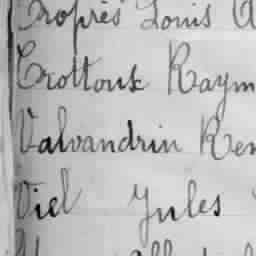 Propres Louis
Crottout Raym
Valvandrin Ren
Viel Jules